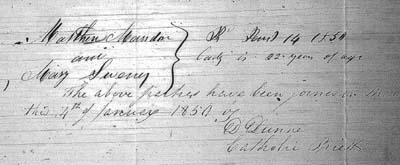 Matthew Mandar
and
Mary Sweeny
14 1850
Lady is 22 years of age
The above parties have been joined in
this 4th of January 1850 by
D Dunne
Catholic Priest